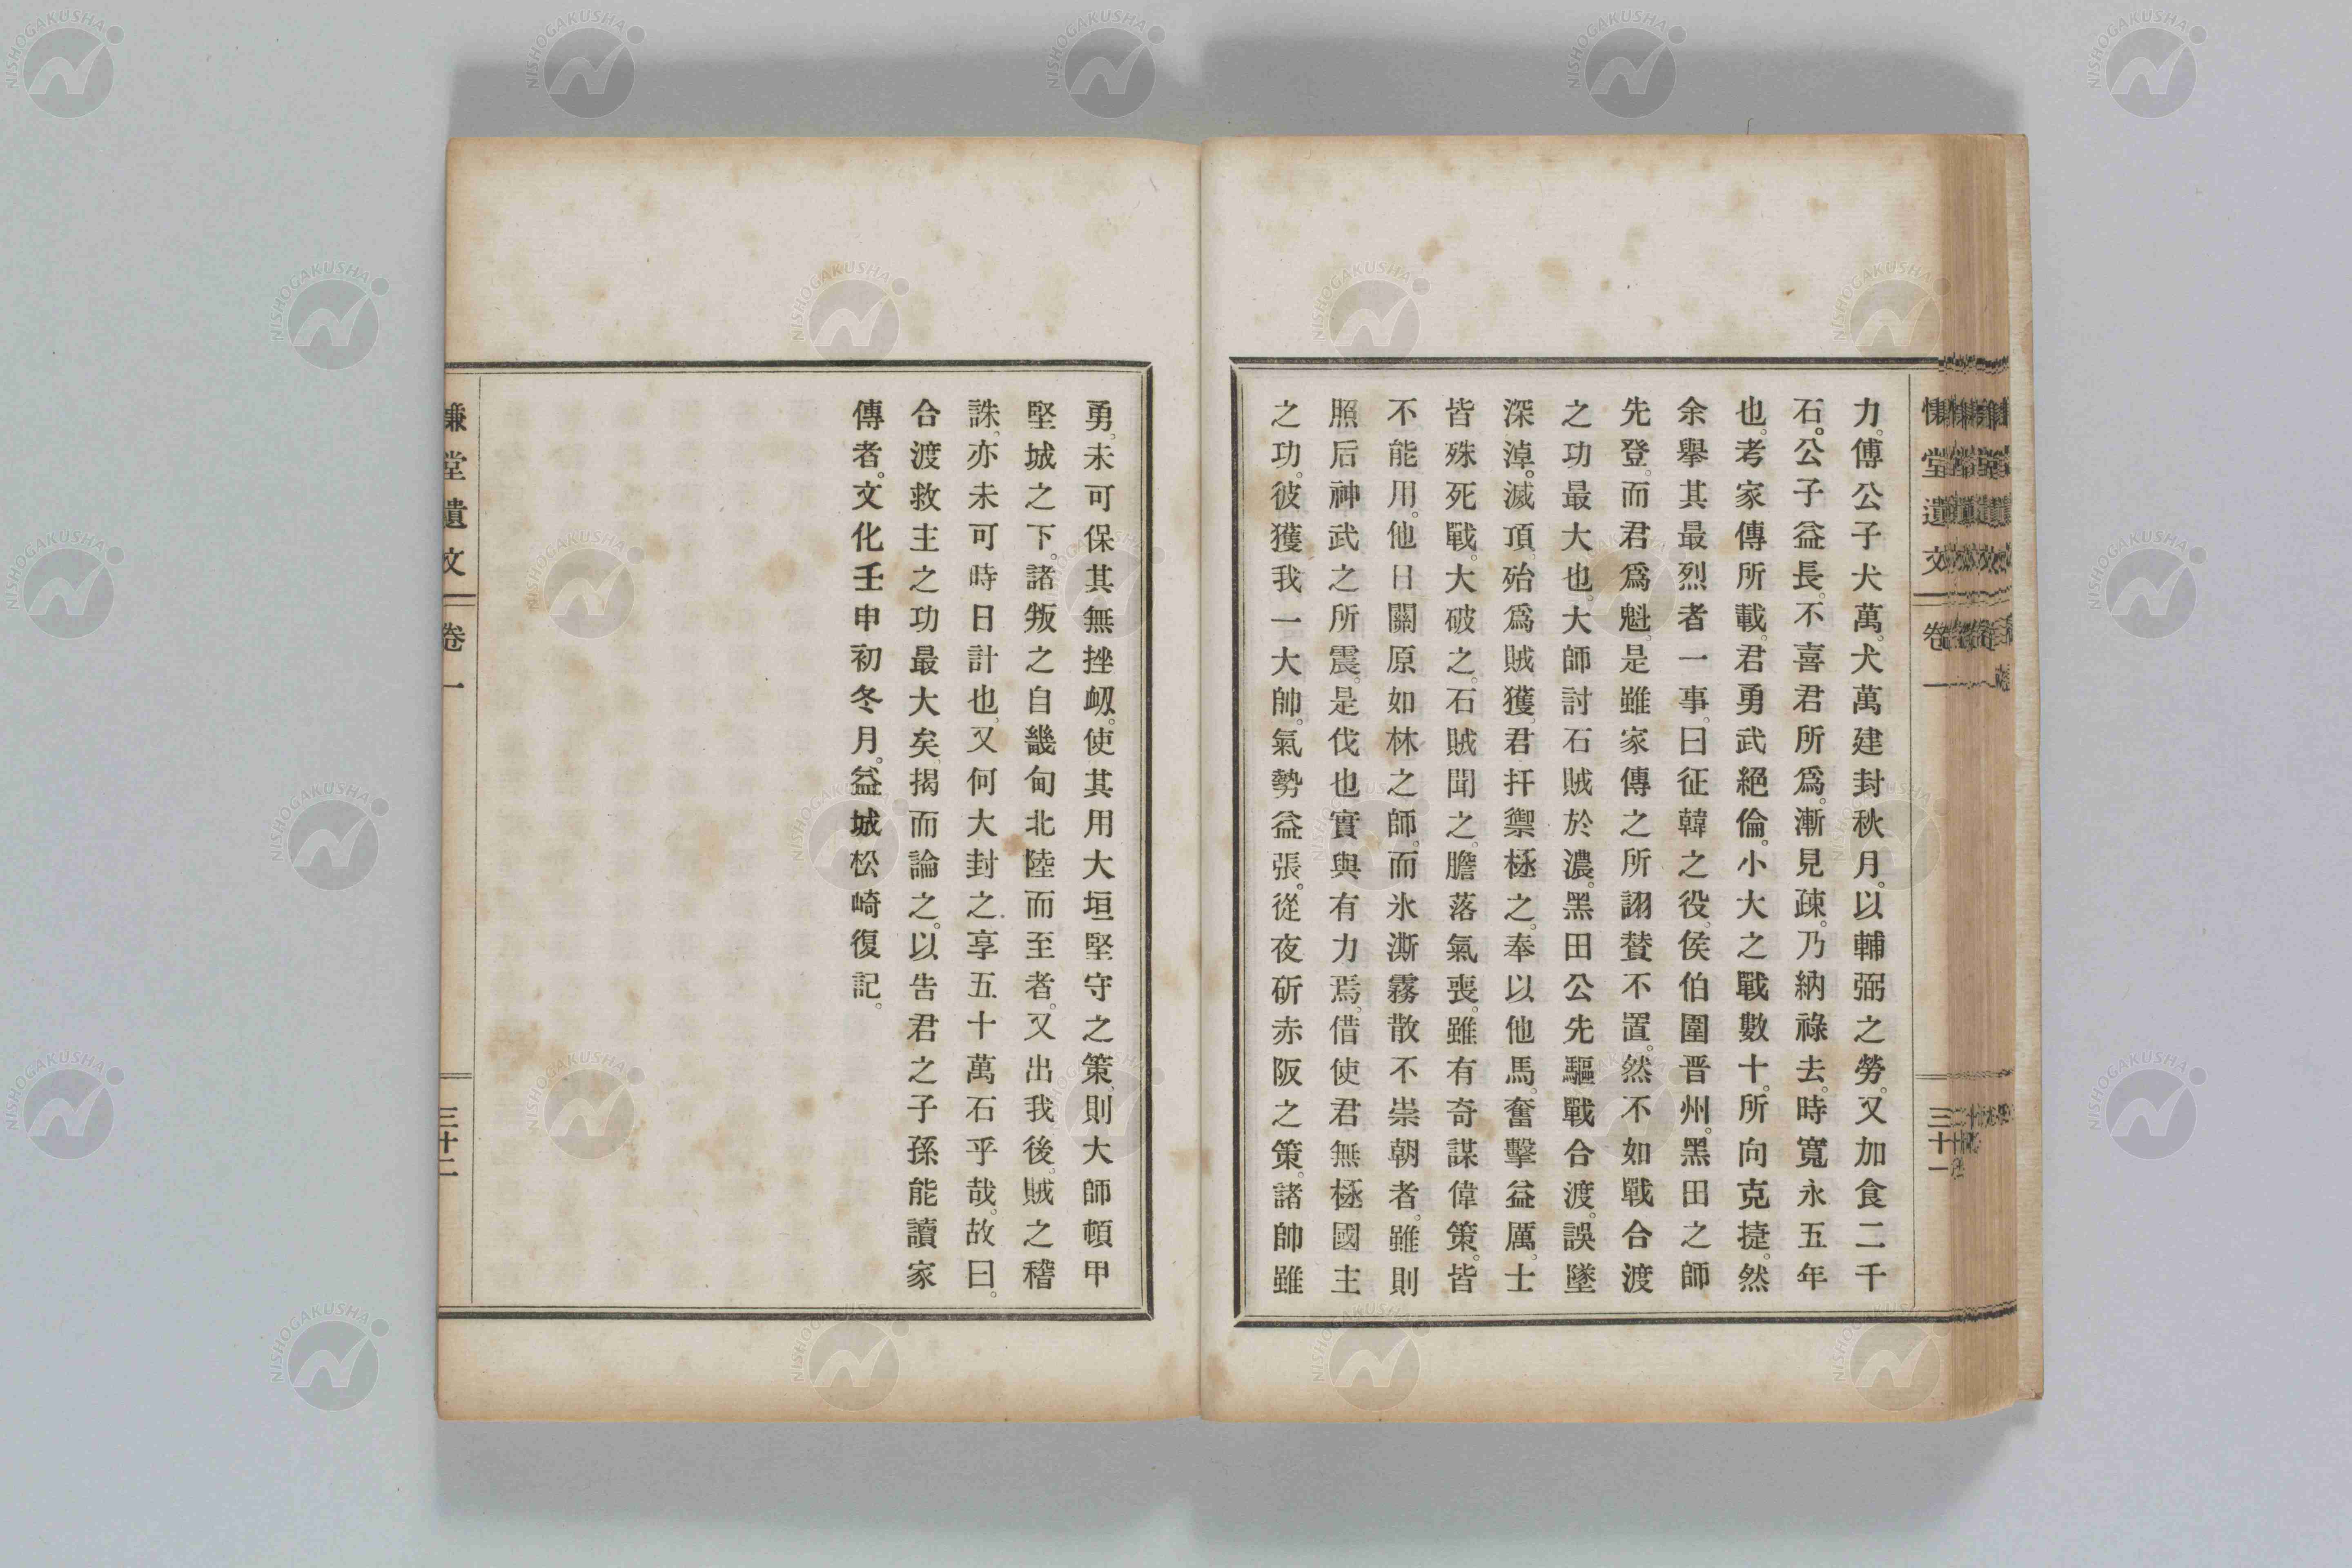 力。傅公子犬萬。犬萬建封秋月。以輔弼之勞。又加食二千
石。公子益長。不喜君所爲。漸見疎。乃納祿去。時寬永五年
也。考家傳所載。君勇武絕倫。小大之戰數十。所向克捷。然
余擧其最烈者一事。曰征韓之役。侯伯圍晋州。黑田之師
先登。而君爲魁。是雖家傳之所詡賛不置。然不如戰合渡
之功最大也。大師討石賊於濃。黑田公先驅戰合渡。誤墜
深淖。滅頂。殆爲賊獲。君扞禦極之。奉以他馬。奮擊益厲。士
皆殊死戰。大破之。石賊聞之。膽落氣喪。雖有奇謀偉策。皆
不能用。他日關原如林之師。而氷澌霧散不崇朝者。雖則
照后神武之所震。是伐也實與有力焉。借使君無極國主
之功。彼獲我一大帥。氣勢益張。從夜斫赤阪之策。諸帥雖
懷堂遺文 卷一 三十一
勇。未可保其無挫衂。使其用大垣堅守之策。則大師頓甲
堅城之下。諸叛之自畿甸北陸而至者。又出我後。賊之稽
誅。亦未可時日計也。又何大封之享五十萬石乎哉。故曰。
合渡救主之功最大矣。揭而論之。以告君之子孫能讀家
傳者。文化壬申初冬月。益城松崎復記。
慊堂遺文 卷一 三十二
NISHOGAKUSHA